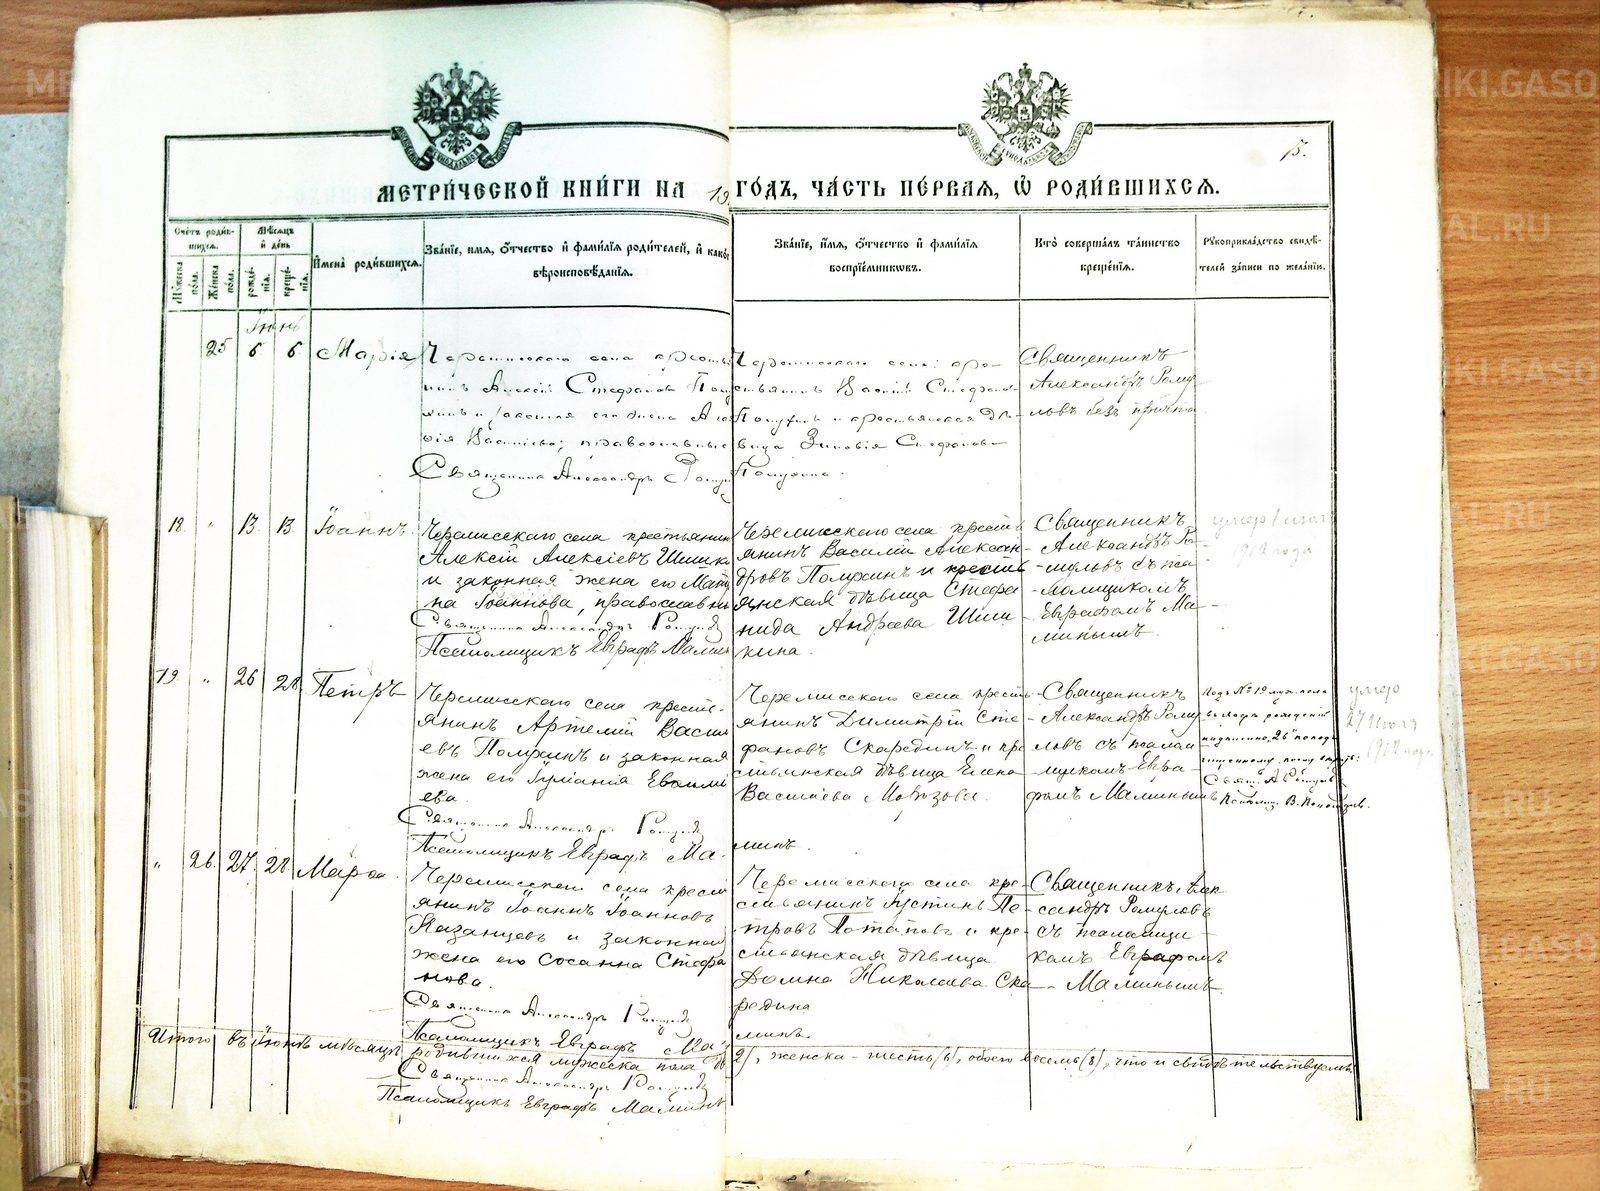 13.
МЕТРИ́ЧЕСКОЙ КНИ́ГИ НА 19 ГО́ДЪ, ЧА́СТЬ ПЕ́РВАЯ, Ѡ҆ РОДИ́ВШИХСЯ.
Сче́тъ роди́вшихся.
Мꙋ́жеска по́ла.
Же́нска по́ла.
Мѣ́сяцъ и҆ де́нь
рожде́нїя.
креще́нїя.
И҆мена̀ роди́вшихся.
Зва́нїе, и҆́мя, ѻ҆́тчество и҆ фами́лїя роди́телей, и҆ како́г
вѣроисповѣ́данїя.
Зва́нїе, и҆́мя, ѻ҆́тчество и҆ фами́лїя
воспрїе́мникѡвъ.
Кто̀ соверша́лъ та́инство
креще́нїя.
Рꙋкоприкла́дство свидѣ́телей за́писи по жела́нїю.
Іюнь
25 6 6 Марія
Черемисскаго села крестья
нинъ Алексій Стефановъ
законная его жена
православные
Священникъ Александръ
Черемисскаго села кре-
стьянинъ Стефановъ
и крестьянская дѣ-
вица Зиновія Стефанова
Священникъ
Александръ Рому
ловъ безъ причта
18 " 13 13 Іоаннъ.
Черемисскаго села крестьянинъ
Алексій Алексіевъ Шишк
и законная жена его Мат
на Іоаннова, православны
Священникъ Александръ
Псаломщикъ Евграфъ Мамин
Черемисскаго села кресть
янинъ Василій Александ-
дровъ Полухинъ и кресть
янская дѣвица Стефа
нида Андреева Шиш
кина.
Священникъ
Александръ Ро-
муловъ съ пса-
ломщикомъ
Евграфомъ Ма-
минымъ.
умеръ 1912 года
19 " 26 28 Петръ
Черемисскаго села крестьянинъ Артемій Васил
евъ Полухинъ и законная
жена его Іуліанія Евѳимі
ева.
Священникъ Александръ
Псаломщикъ Евграфъ Ма-
Черемисскаго села кресть
янинъ Димитрій Сте
фановъ Скарединъ и кре
стьянская дѣвица Елена
Васильева Морозова.
минъ.
Священникъ
Александръ Рому
ловъ съ псалом
щикомъ Евгра-
фомъ Маминымъ
Подъ № 19 муж. пола
надписано "26" по под
умеръ
27 Іюля
1912 года
" 26 27 28 Марѳа
Черемисскаго села кресть
янинъ Іоаннъ Іоанновъ
Казанцевъ и законная
жена его Сосанна Стефа
нова.
Священникъ Александръ
Псаломщикъ Евграфъ Ма-
Черемисскаго села кре-
стьянинъ Іустинъ Пе-
тровъ Потаповъ и кре-
стьянская дѣвица
Домна Николаева Ска
редина
минъ.
Священникъ Алек
сандръ Ромуловъ
съ псаломщи-
комъ Евграфомъ
Маминымъ.
Итого въ Іюнѣ мѣсяцѣ родившихся мужеска пола дв
2), женска - шесть (6), обоего восемь (8), что и свидѣтельствуемъ.
Священникъ Александръ
Псаломщикъ Евграфъ Маминъ